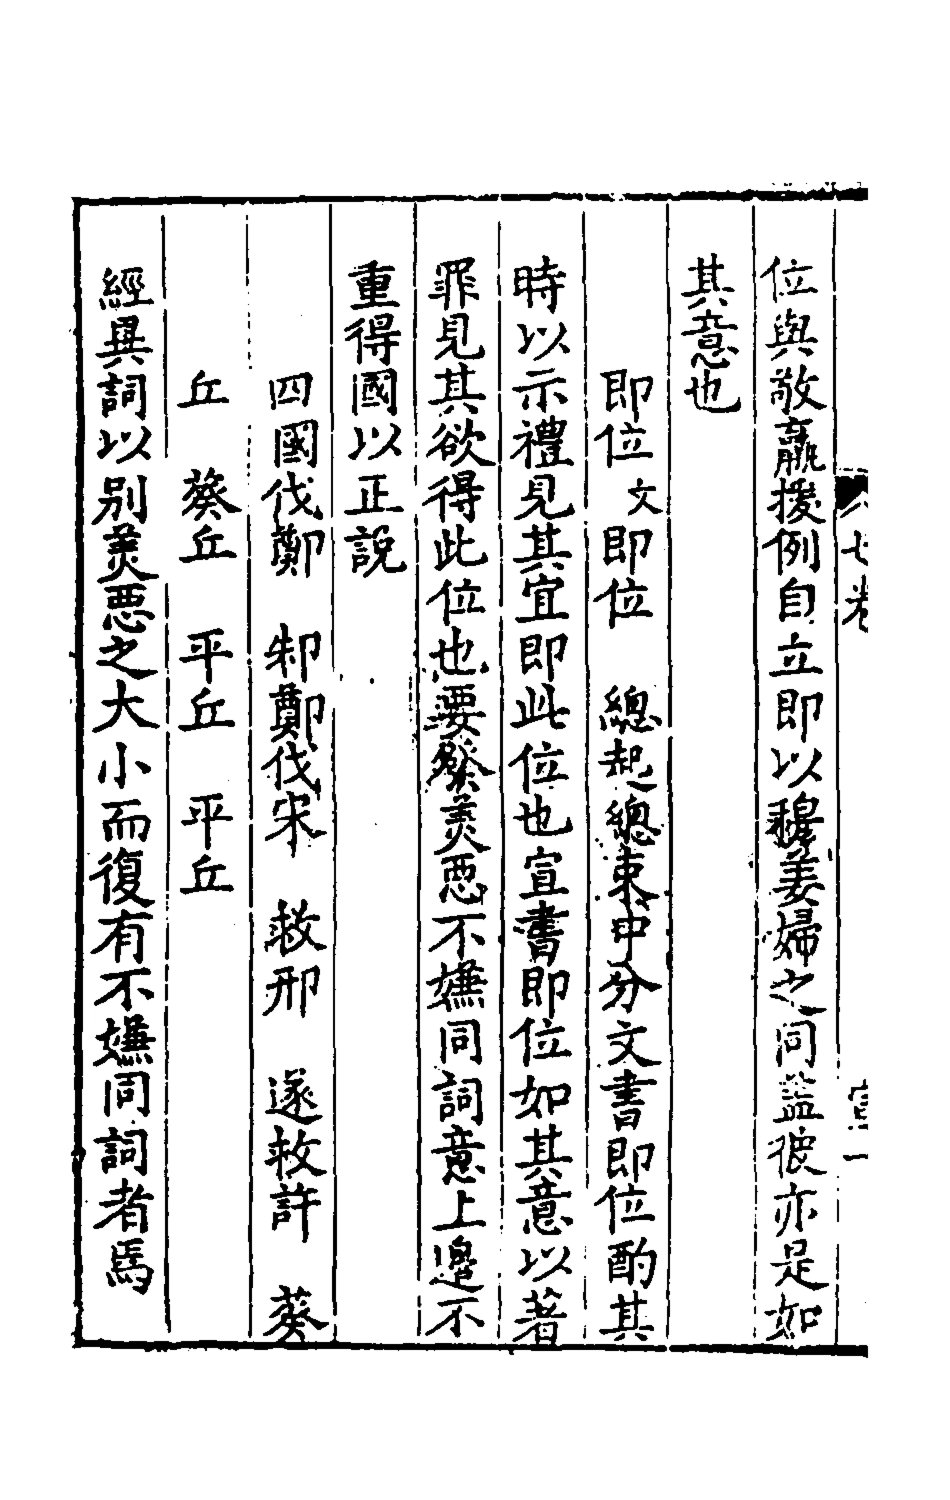 七卷 宣一
位與敬嬴援例自立即以穆姜婦之同謚彼亦是如
其意也
即位 文 即位 總起總束中分文書即位酌其
時以示禮見其宜即此位也宣書即位如其意以著
罪見其欲得此位也要發美惡不嫌同詞意上邊不
重得國以正說
四國伐鄭 邾鄭伐宋 救邢 遂救許 葵
丘 葵丘 平丘 平丘
經異詞以别美惡之大小而復有不嫌同詞者焉